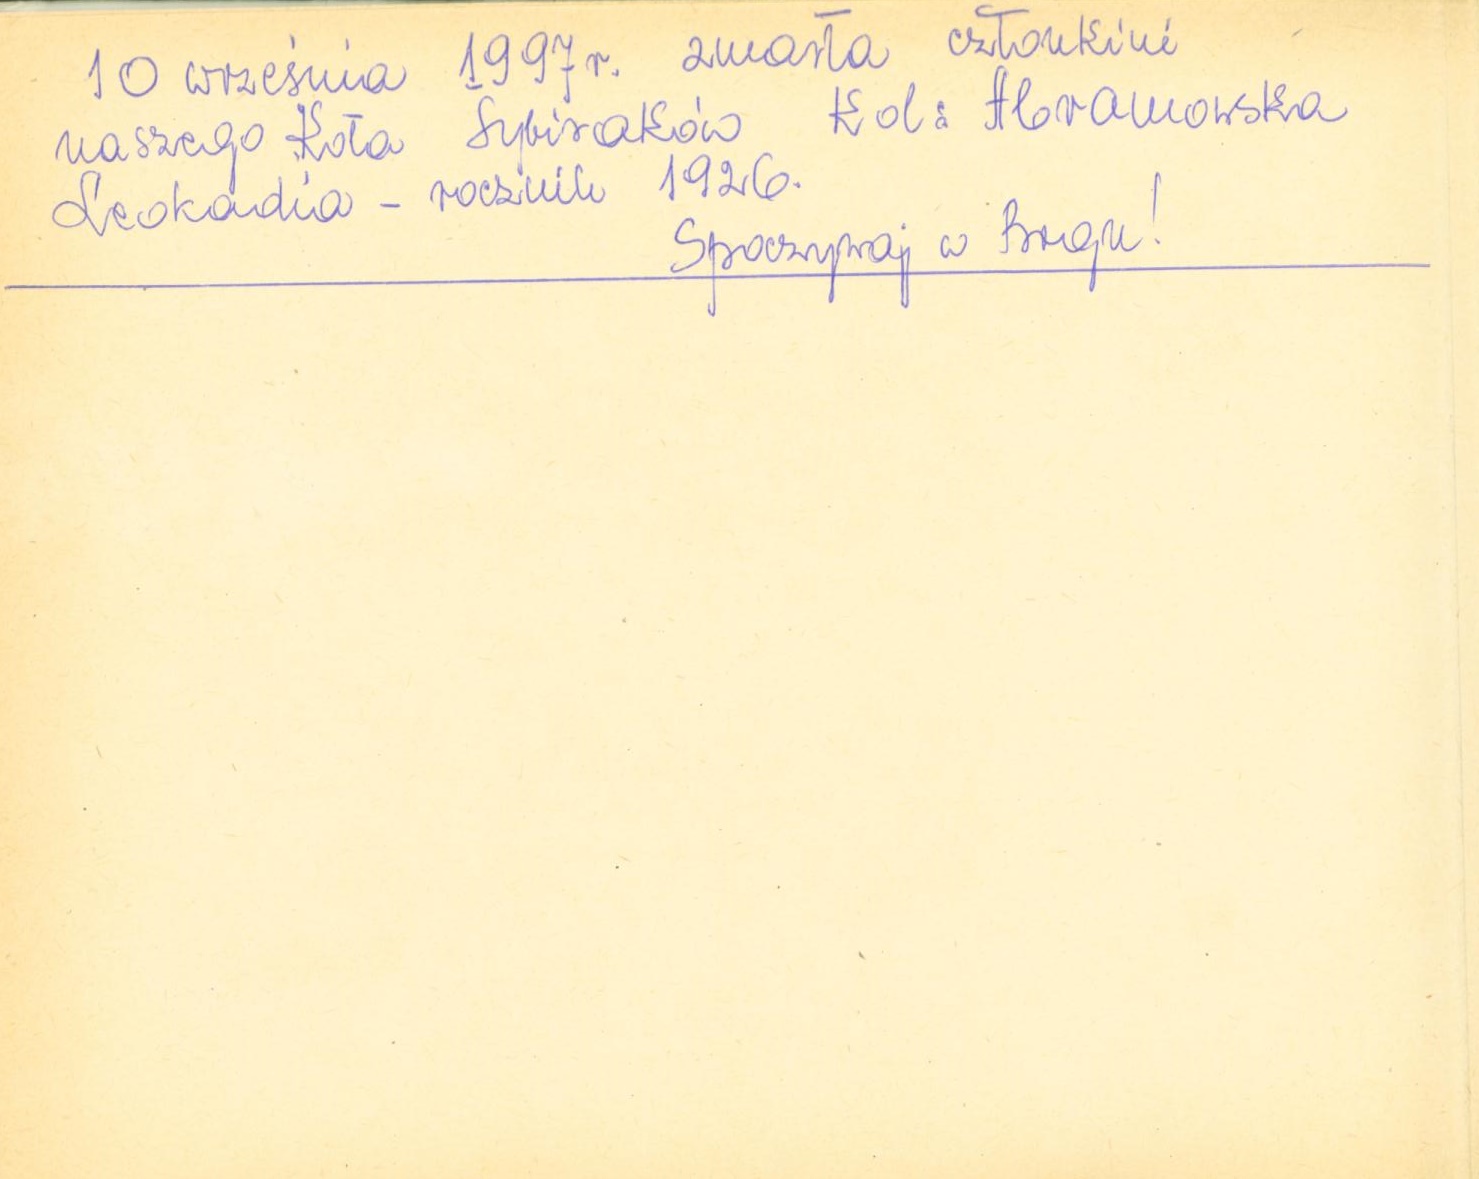 10 września 1997 r. zmarła członkini
naszego Koła Sybiraków Kol: Abramowska
Leokadia - rocznik 1926.
Spoczywaj w Bogu!